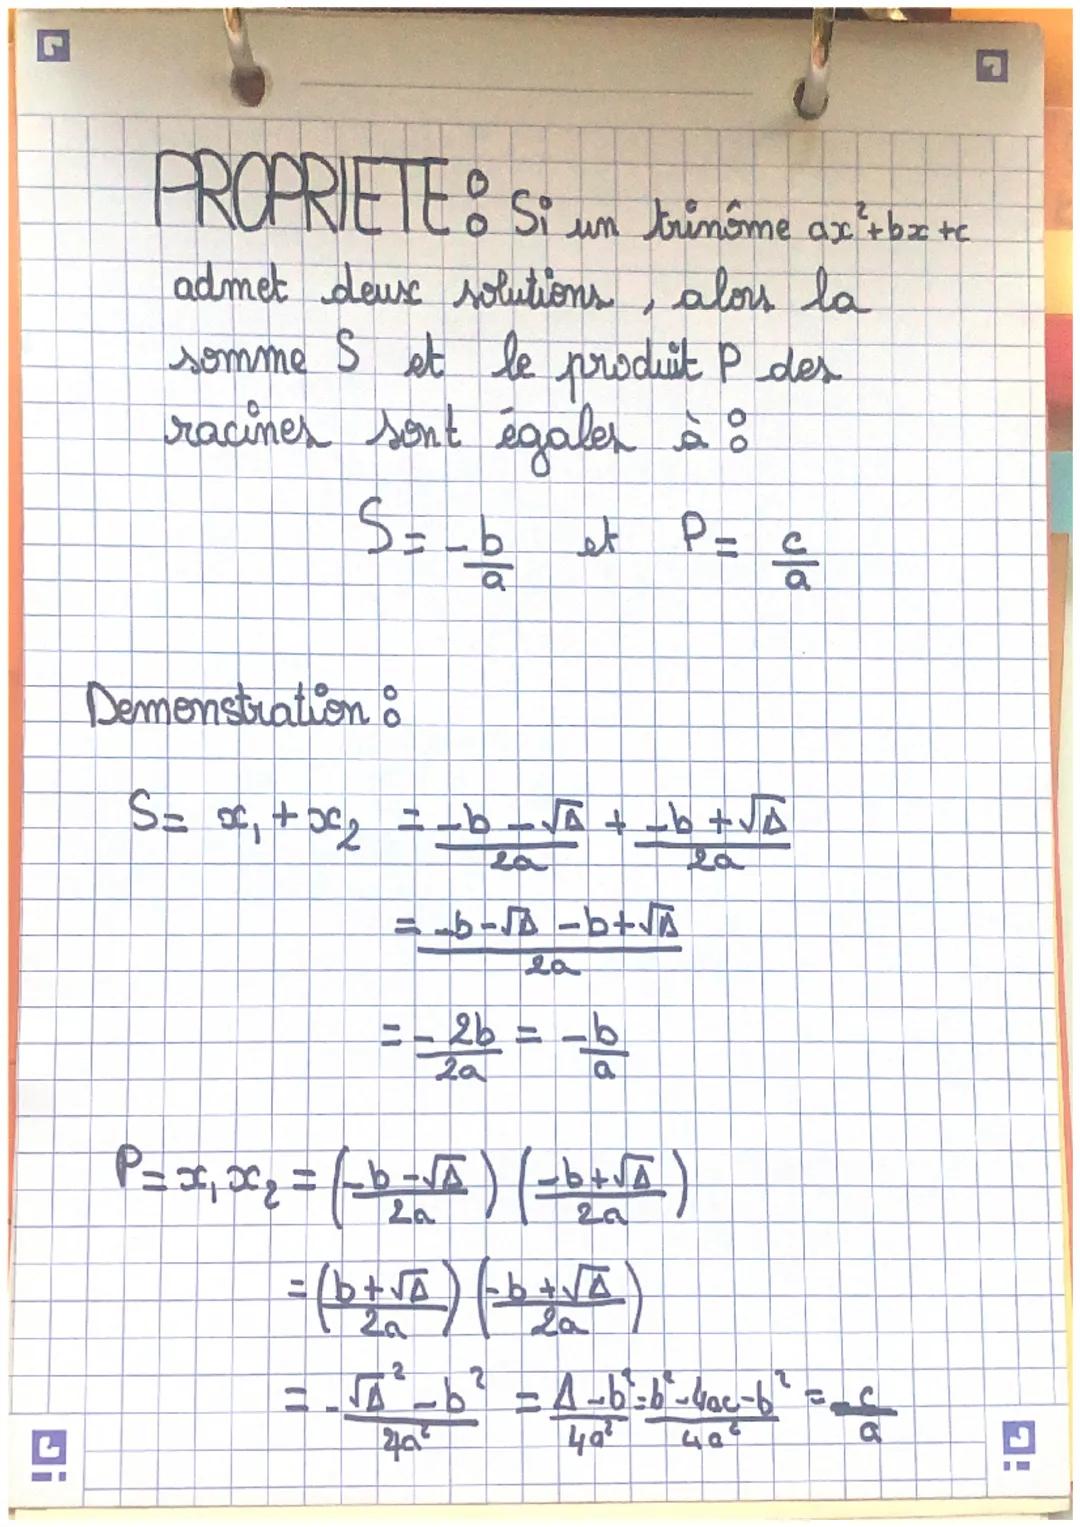 PROPRIETE : Si un trinôme ax²+bx+c
admet deux solutions, alors la
somme S et le produit P des
racines sont égales à :
S = -b/a et P = c/a
Demonstration :
S = x₁ + x₂ = (-b - √Δ)/2a + (-b + √Δ)/2a
= (-b - √Δ - b + √Δ)/2a
= -2b/2a = -b/a
P = x₁ x₂ = ((-b - √Δ)/2a) ((-b + √Δ)/2a)
= ((b + √Δ)/2a) ((-b + √Δ)/2a)
= - (√Δ² - b²)/4a² = (Δ - b²)/4a² = (b² - 4ac - b²)/4a² = -c/a